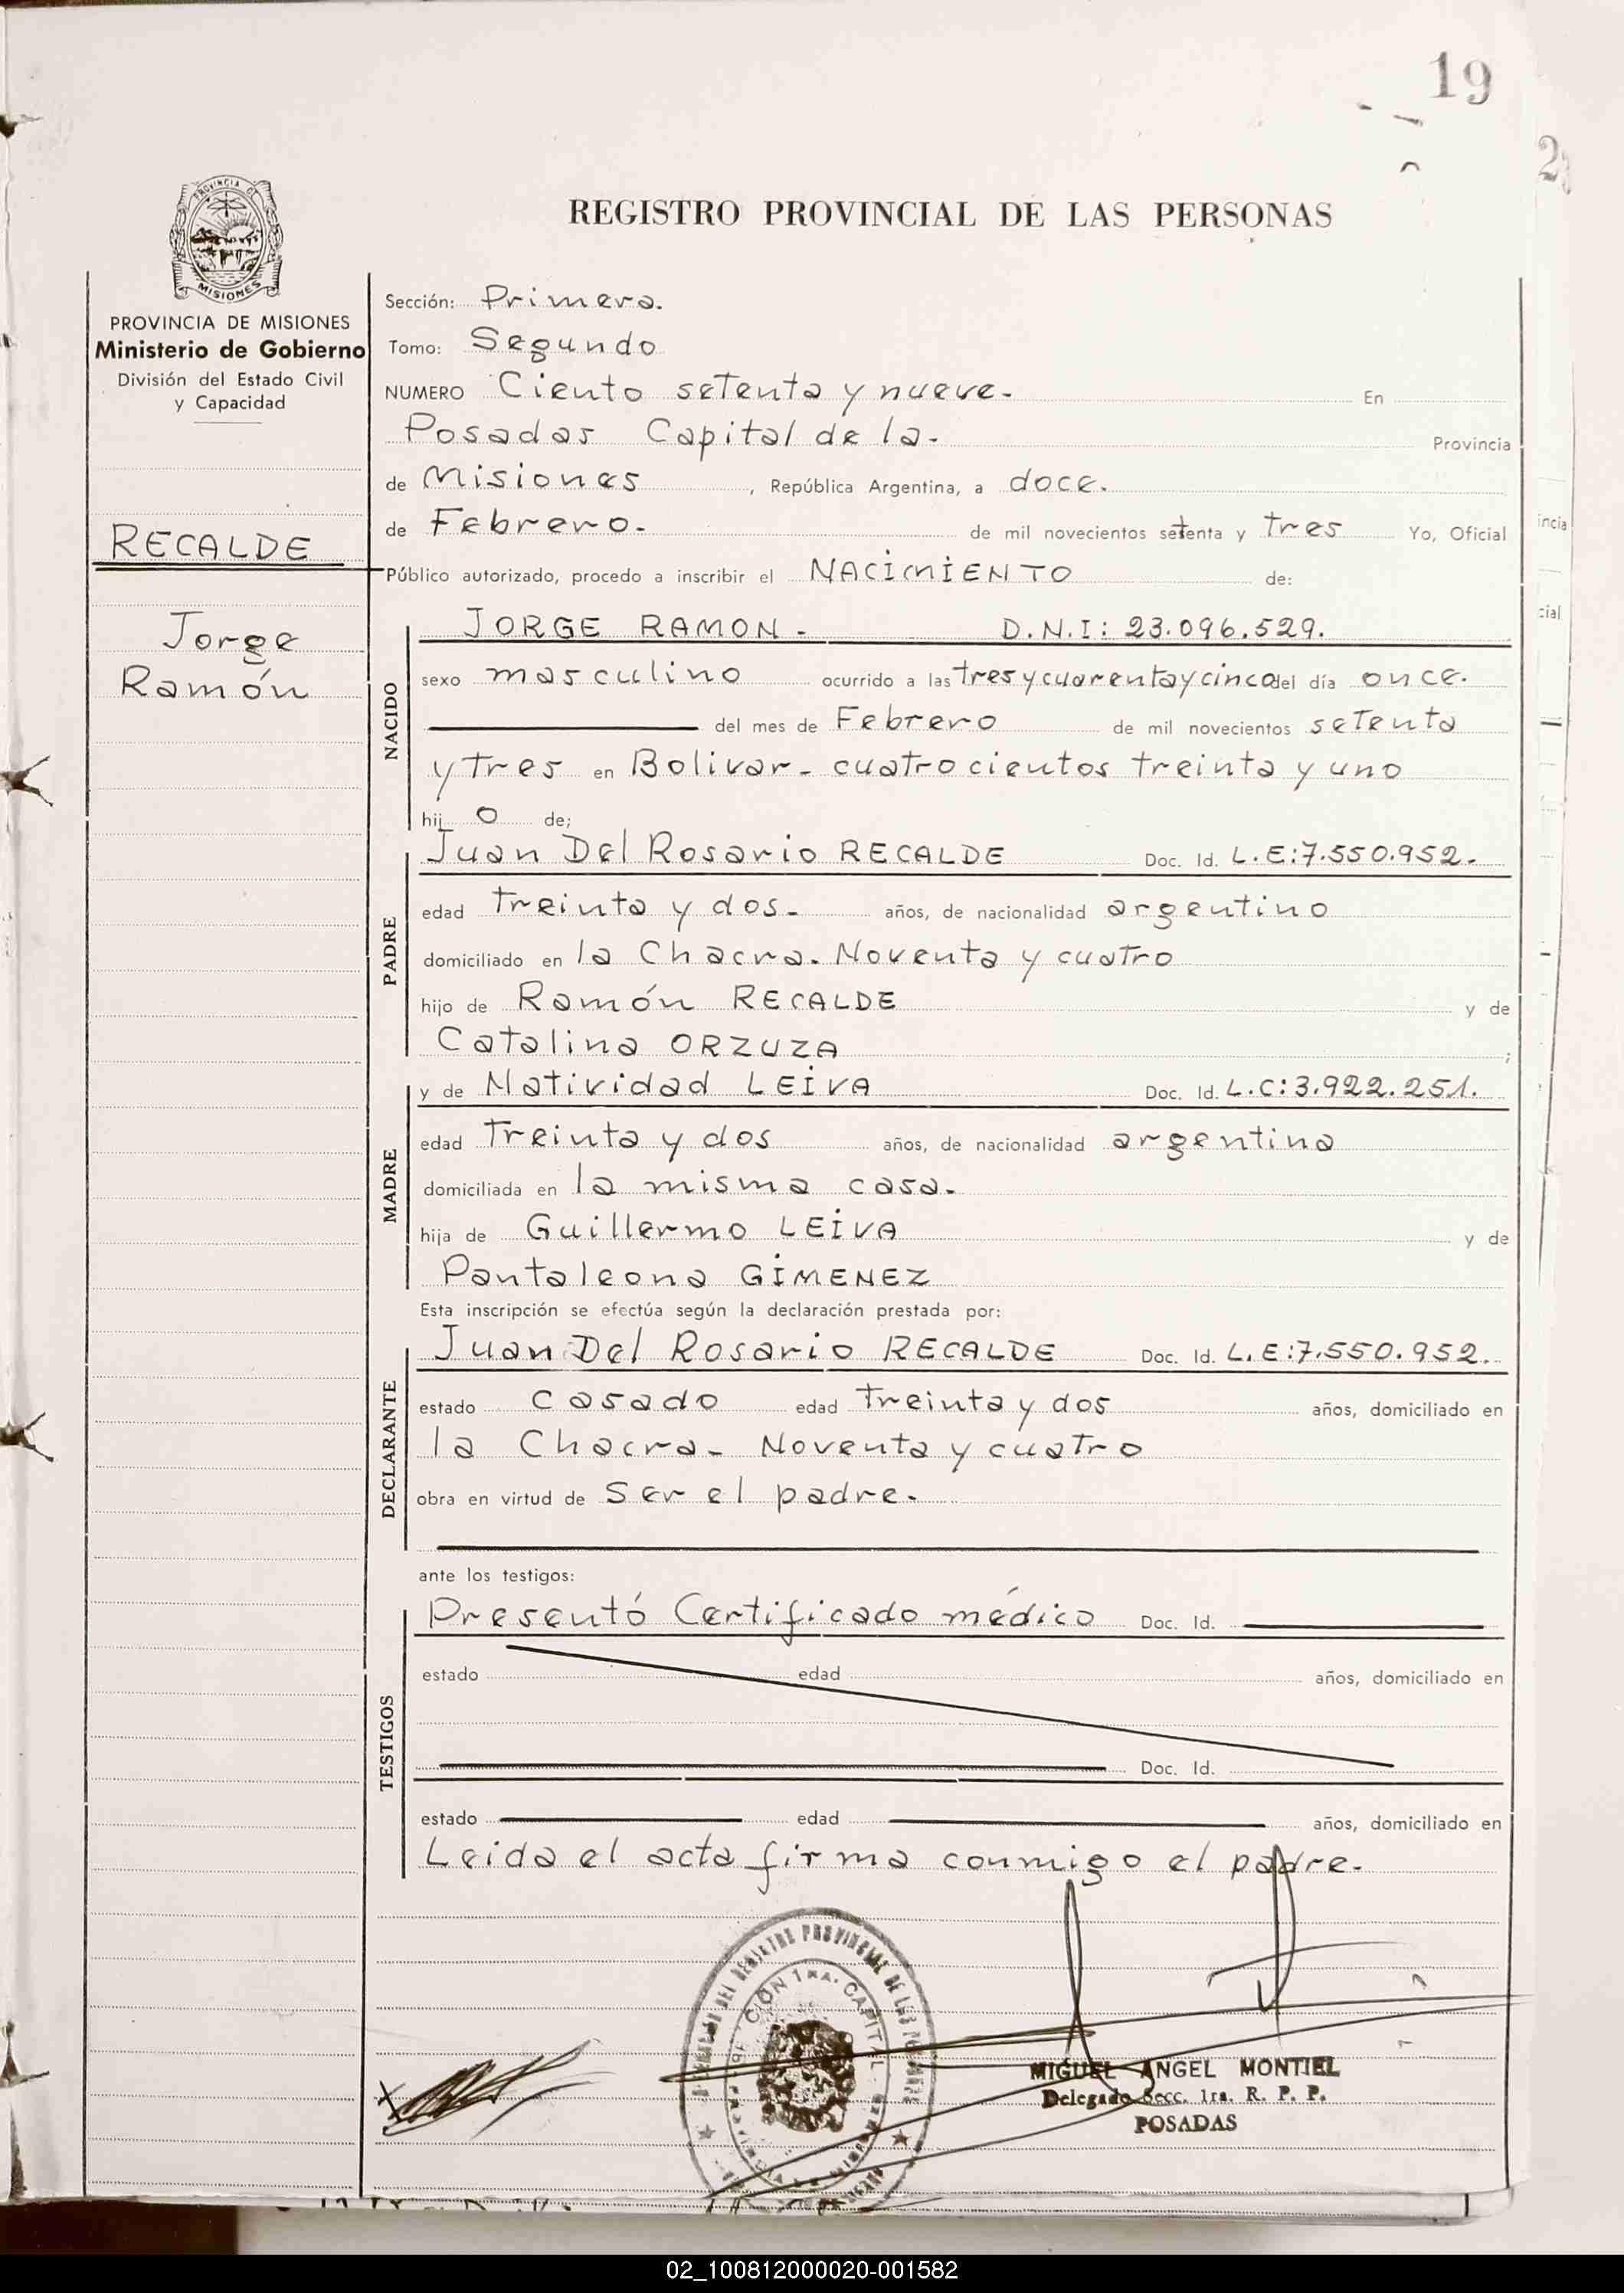 19
REGISTRO PROVINCIAL DE LAS PERSONAS
PROVINCIA DE MISIONES
Ministerio de Gobierno
División del Estado Civil
y Capacidad
RECALDE
Jorge
Ramón
Sección: Primera.
Tomo: Segundo
NUMERO Ciento setenta y nueve. En
Posadas Capital de la. Provincia
de Misiones, República Argentina, a doce.
de Febrero. de mil novecientos setenta y tres Yo, Oficial
Público autorizado, procedo a inscribir el NACIMIENTO de:
NACIDO
JORGE RAMON. D.N.I: 23.096.529.
sexo masculino ocurrido a las tres y cuarenta y cinco del día once.
del mes de Febrero de mil novecientos setenta
y tres en Bolivar. cuatrocientos treinta y uno
hij o de;
PADRE
Juan Del Rosario RECALDE Doc. Id. L.E:7.550.952.
edad treinta y dos. años, de nacionalidad argentino
domiciliado en la Chacra. Noventa y cuatro
hijo de Ramón RECALDE y de
Catalina ORZUZA ;
MADRE
y de Natividad LEIVA Doc. Id. L.C:3.922.251.
edad treinta y dos años, de nacionalidad argentina
domiciliada en la misma casa.
hija de Guillermo LEIVA y de
Pantaleona GIMENEZ
Esta inscripción se efectúa según la declaración prestada por:
DECLARANTE
Juan Del Rosario RECALDE Doc. Id. L.E:7.550.952.
estado casado edad treinta y dos años, domiciliado en
la Chacra. Noventa y cuatro
obra en virtud de ser el padre.
ante los testigos:
TESTIGOS
Presentó Certificado médico Doc. Id.
estado edad años, domiciliado en
Doc. Id.
estado edad años, domiciliado en
Leida el acta firma conmigo el padre.
MIGUEL ANGEL MONTIEL
Delegado Secc. 1ra. R. P. P.
POSADAS
02_100812000020-001582